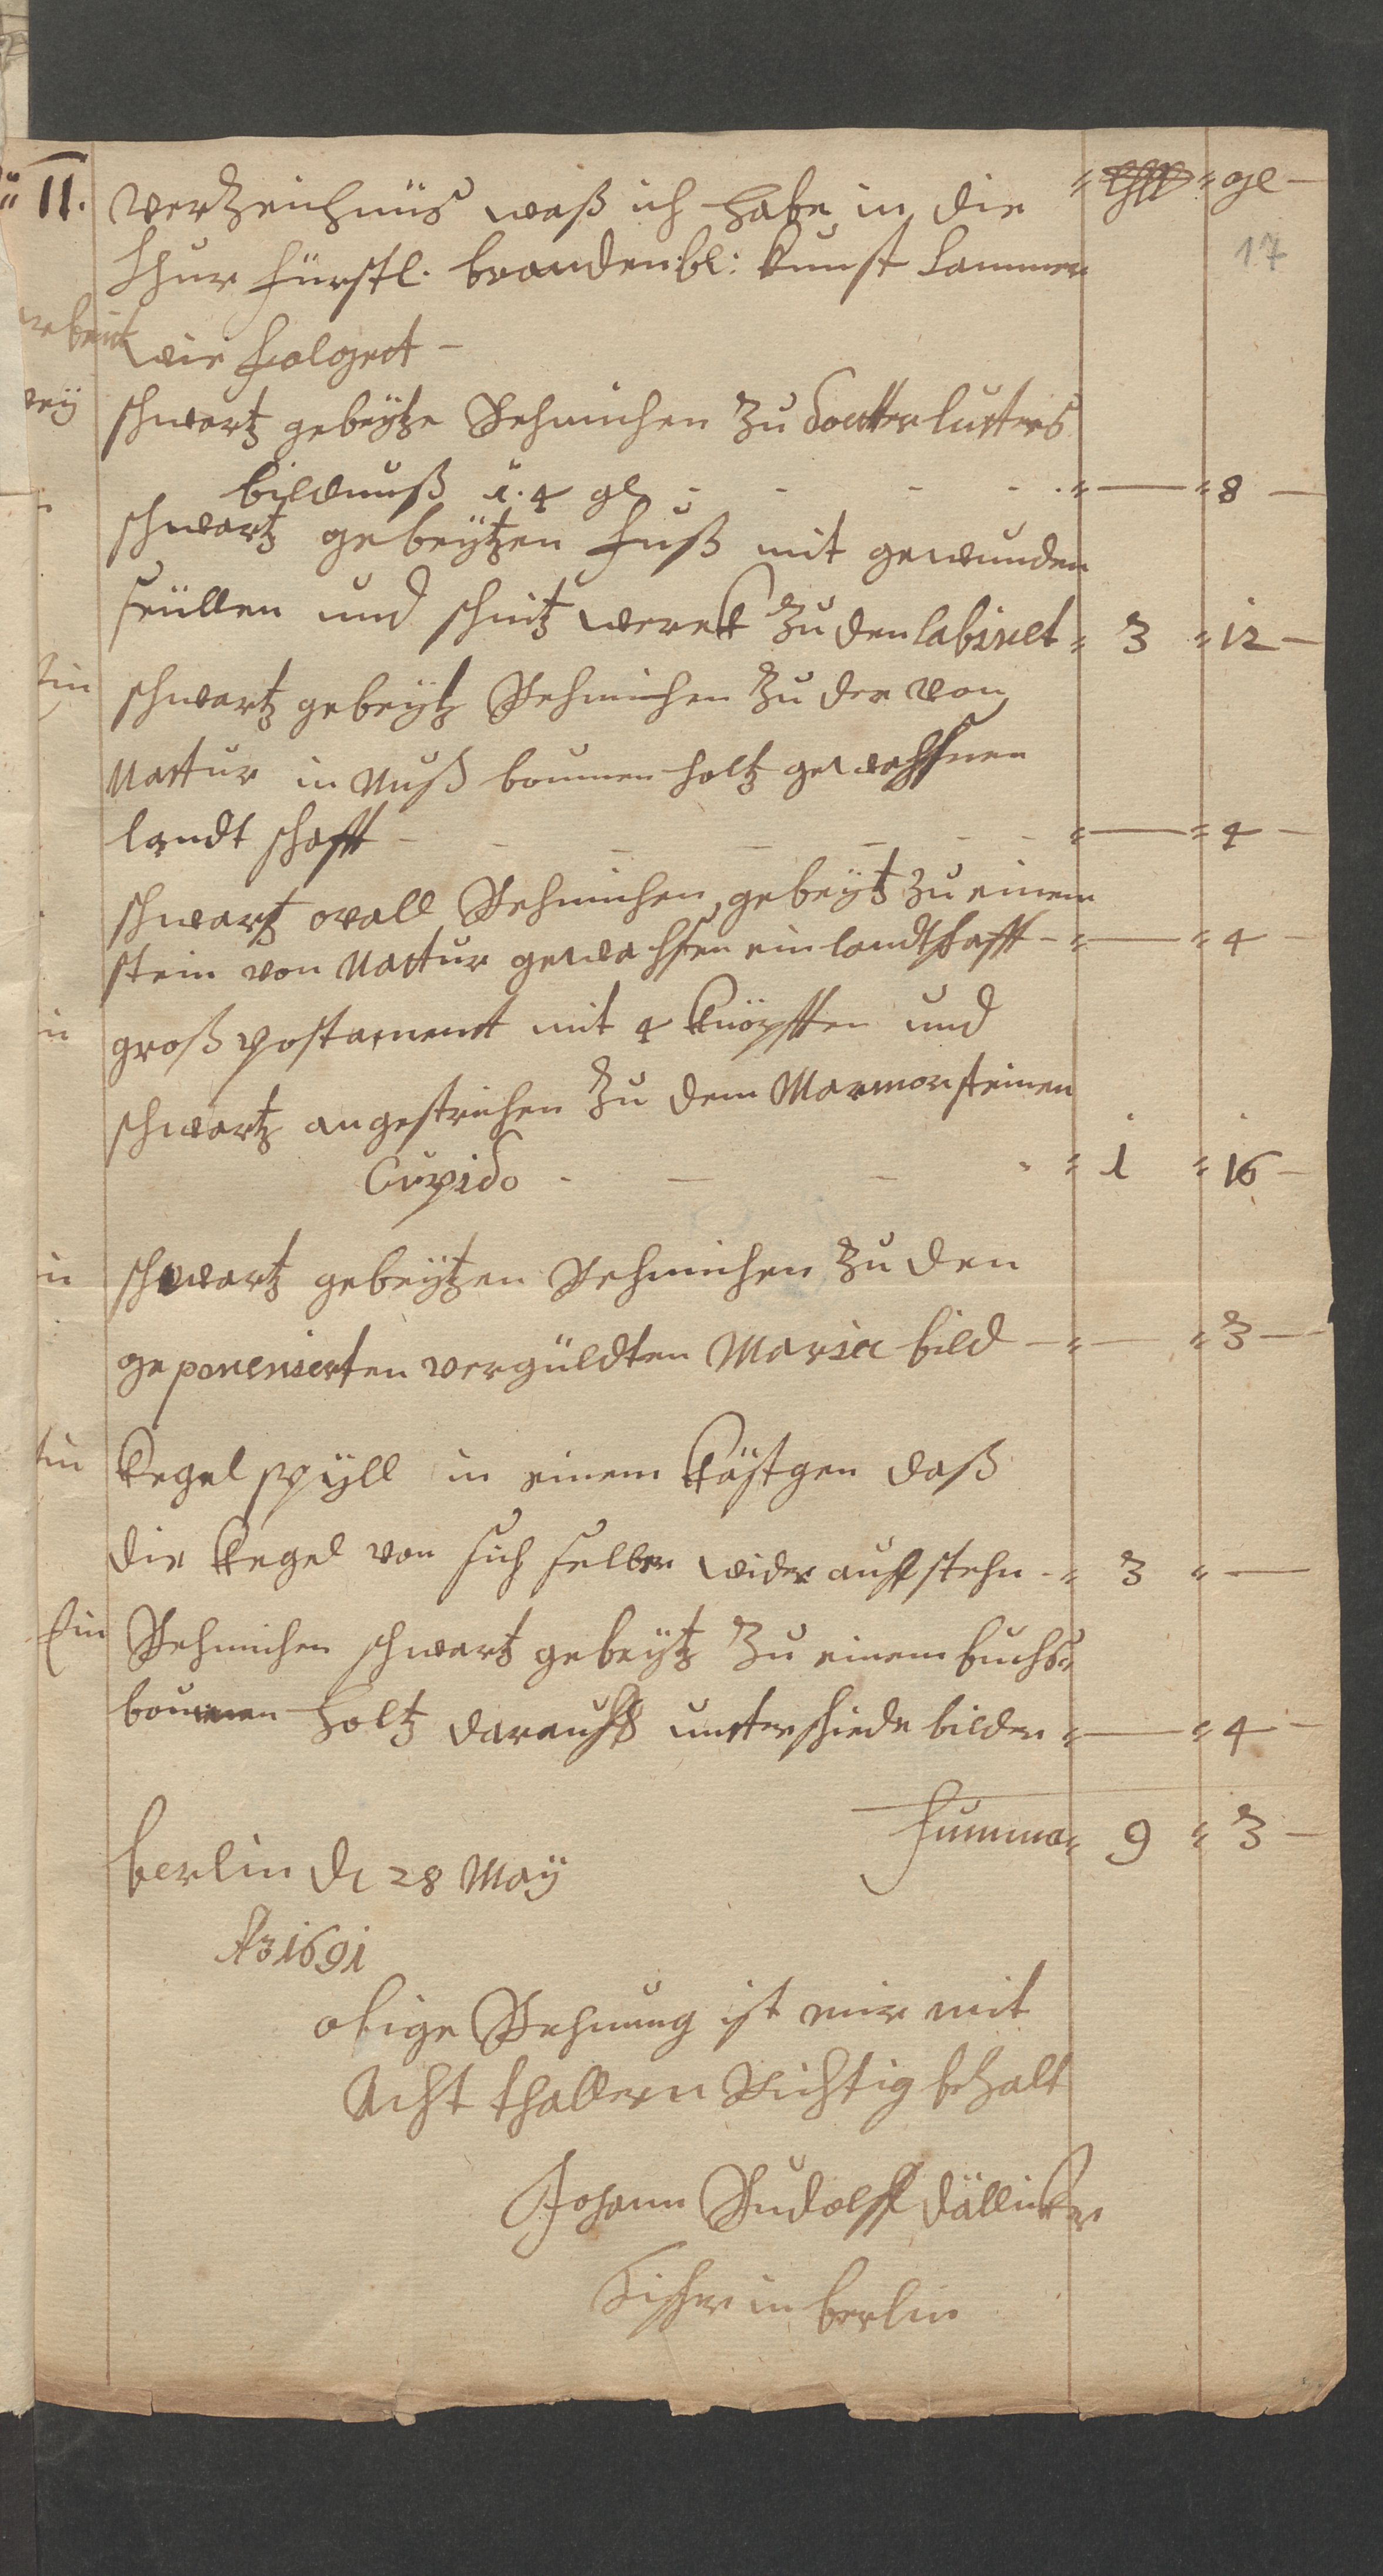 11. Vertzeichnüs waß ich habe in die " thll " gl —
17
Chur fürstl. brandenbl: kunst Cammer
arbeit wie folgett —
schwartz gebeytze Rehmichen zu docktter lutters
bildnuß â. 4 gl - - - - " — " 8 —
schwartz gebeÿtzen fuß mit gewunden
seüllen und schnitz werck zu den Cabinet " 3 " 12 —
Ein schwartz gebeÿtz Rehmichen zu der von
Nattur in Nuß boumen holtz gewachssnen
landt schafft - - - - - - " — " 4 —
schwartz ovall Rehmichen gebeÿtz zu einem
stein von Nattur gewachssen ein landtschafft - " — " 4 —
groß postament mit 4 knöpffen und
schwartz angestrichen zu dem Marmorsteinen
Cupido - - - - " 1 " 16 —
schwartz gebeÿtzen Rehmichen zu den
geponenierten vergüldten Maria bild — " — " 3 —
Kegel spÿll in einem kästgen daß
die kegel von sich selber wider auff stehn - " 3 " —
Ein Rehmichen schwartz gebeÿtz zu einem buchs=
boumen holtz darauff untterschiede bilder " — " 4 —
Summa " 9 " 3 —
berlin d 28 Maÿ
Ao 1691
obige Rehnung ist mir mit
Acht thallern Richtig bezalt
Johann Rudolff Dällicker
Tischer in berlin